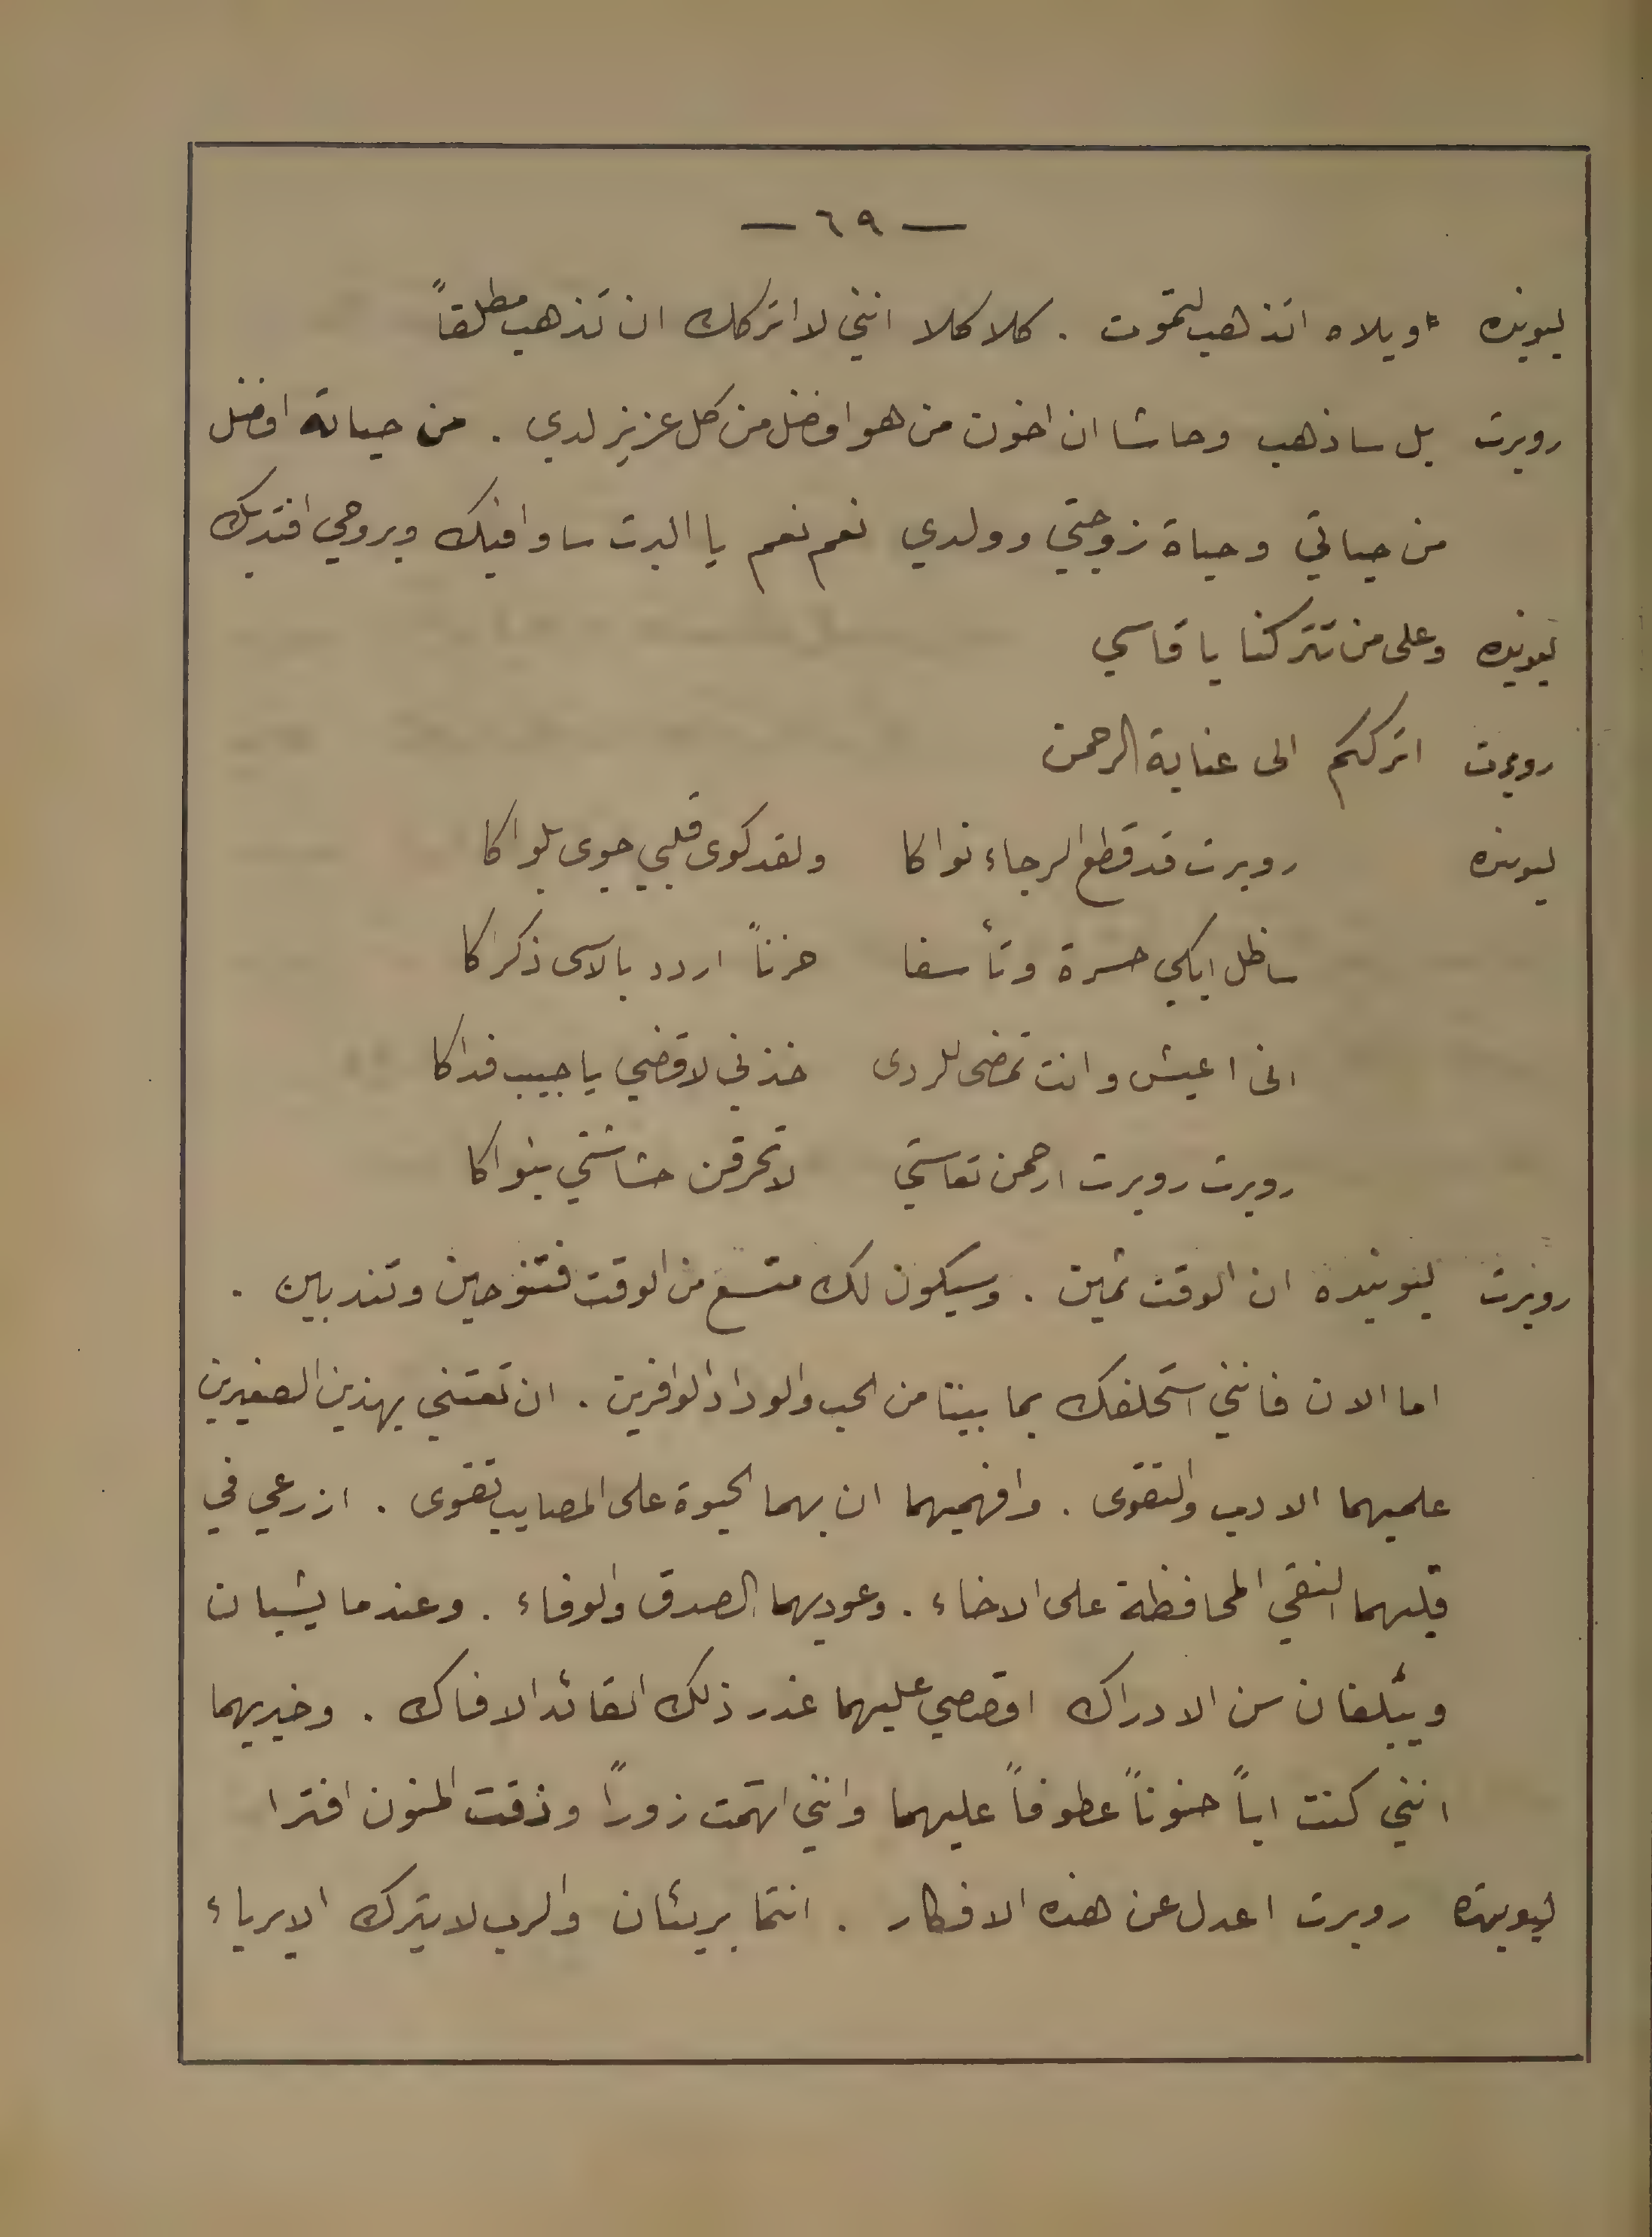 — ٦٩ —
ليوينده اويلاه اتذهب لتموت . كلا كلا انني لا اتركك ان تذهب مطلقاً
روبرت بل ساذهب وحاشا ان اخون من هو افضل من كل عزيز لدي . من حياته افضل
من حياتي وحياة زوجتي وولدي نعم نعم يا البرت ساوافيك وبروحي افتديك
ليوينده وعلى من تتركنا يا قاسي
روبرت اترككم الى عناية الرحمن
ليوينده روبرت قد قطع الرجاء نواكا ولقد كوى قلبي جوى بلواكا
ساظل ابكي حسرة وتأسفا حزناً اردد بالاسى ذكراكا
انى اعيش وانت تمضى للردى خذني لاقضي يا حبيب فداكا
روبرت روبرت ارحمن تعاستي لا تحرقن حشاشتي بنواكا
روبرت ليوينده ان الوقت ثمين . وسيكون لك متسع من الوقت فتنوحين وتندبين .
اما الان فانني استحلفك بما بيننا من الحب والوداد الوافرين . ان تعتني بهذين الصغيرين
علميهما الادب والتقوى . وافهميهما ان بهما الحيوة على المصايب تقوى . ازرعي في
قلبهما النقي المحافظة على الاخاء . وعوديهما الصدق والوفاء . وعندما يشبان
ويبلغان سن الادراك اقصصي عليهما غدر ذلك القائد الافاك . وخبريهما
انني كنت اباً حنوناً عطوفاً عليهما وانني اتهمت زوراً وذقت المنون افترا
ليوينده روبرت اعدل عن هذه الافكار . انتما بريئان والرب لا يترك الابرياء